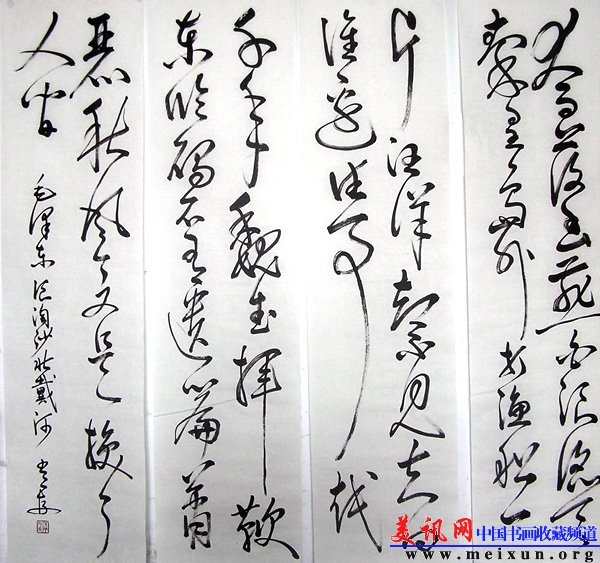 大雨落幽燕白浪滔天
秦皇岛外打渔船一
片汪洋都不见知向
谁边往事越
千年魏武挥鞭
东临碣石有遗篇萧
瑟秋风今又是换了
人间
毛泽东浪淘沙北戴河
美讯网 中国书画收藏频道
www.meixun.org